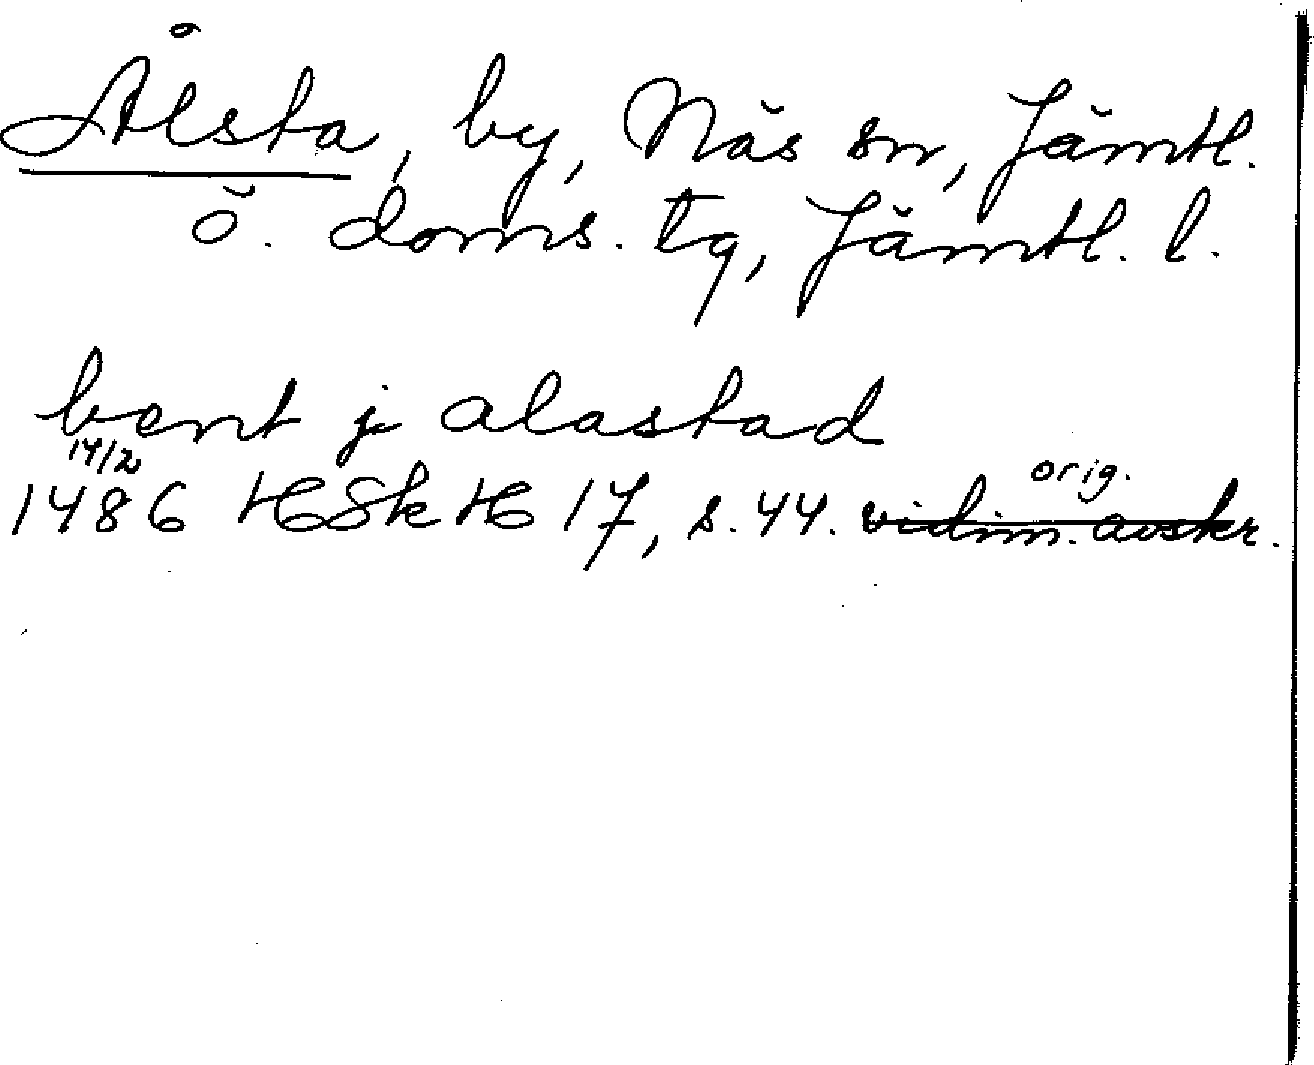 Ålsta, by, Näs sn, Jämtl.
ö. doms. tg, Jämtl. l.
bent j alastad
14/2
orig.
1486 HSkH 17, s. 44. vidim. avskr.